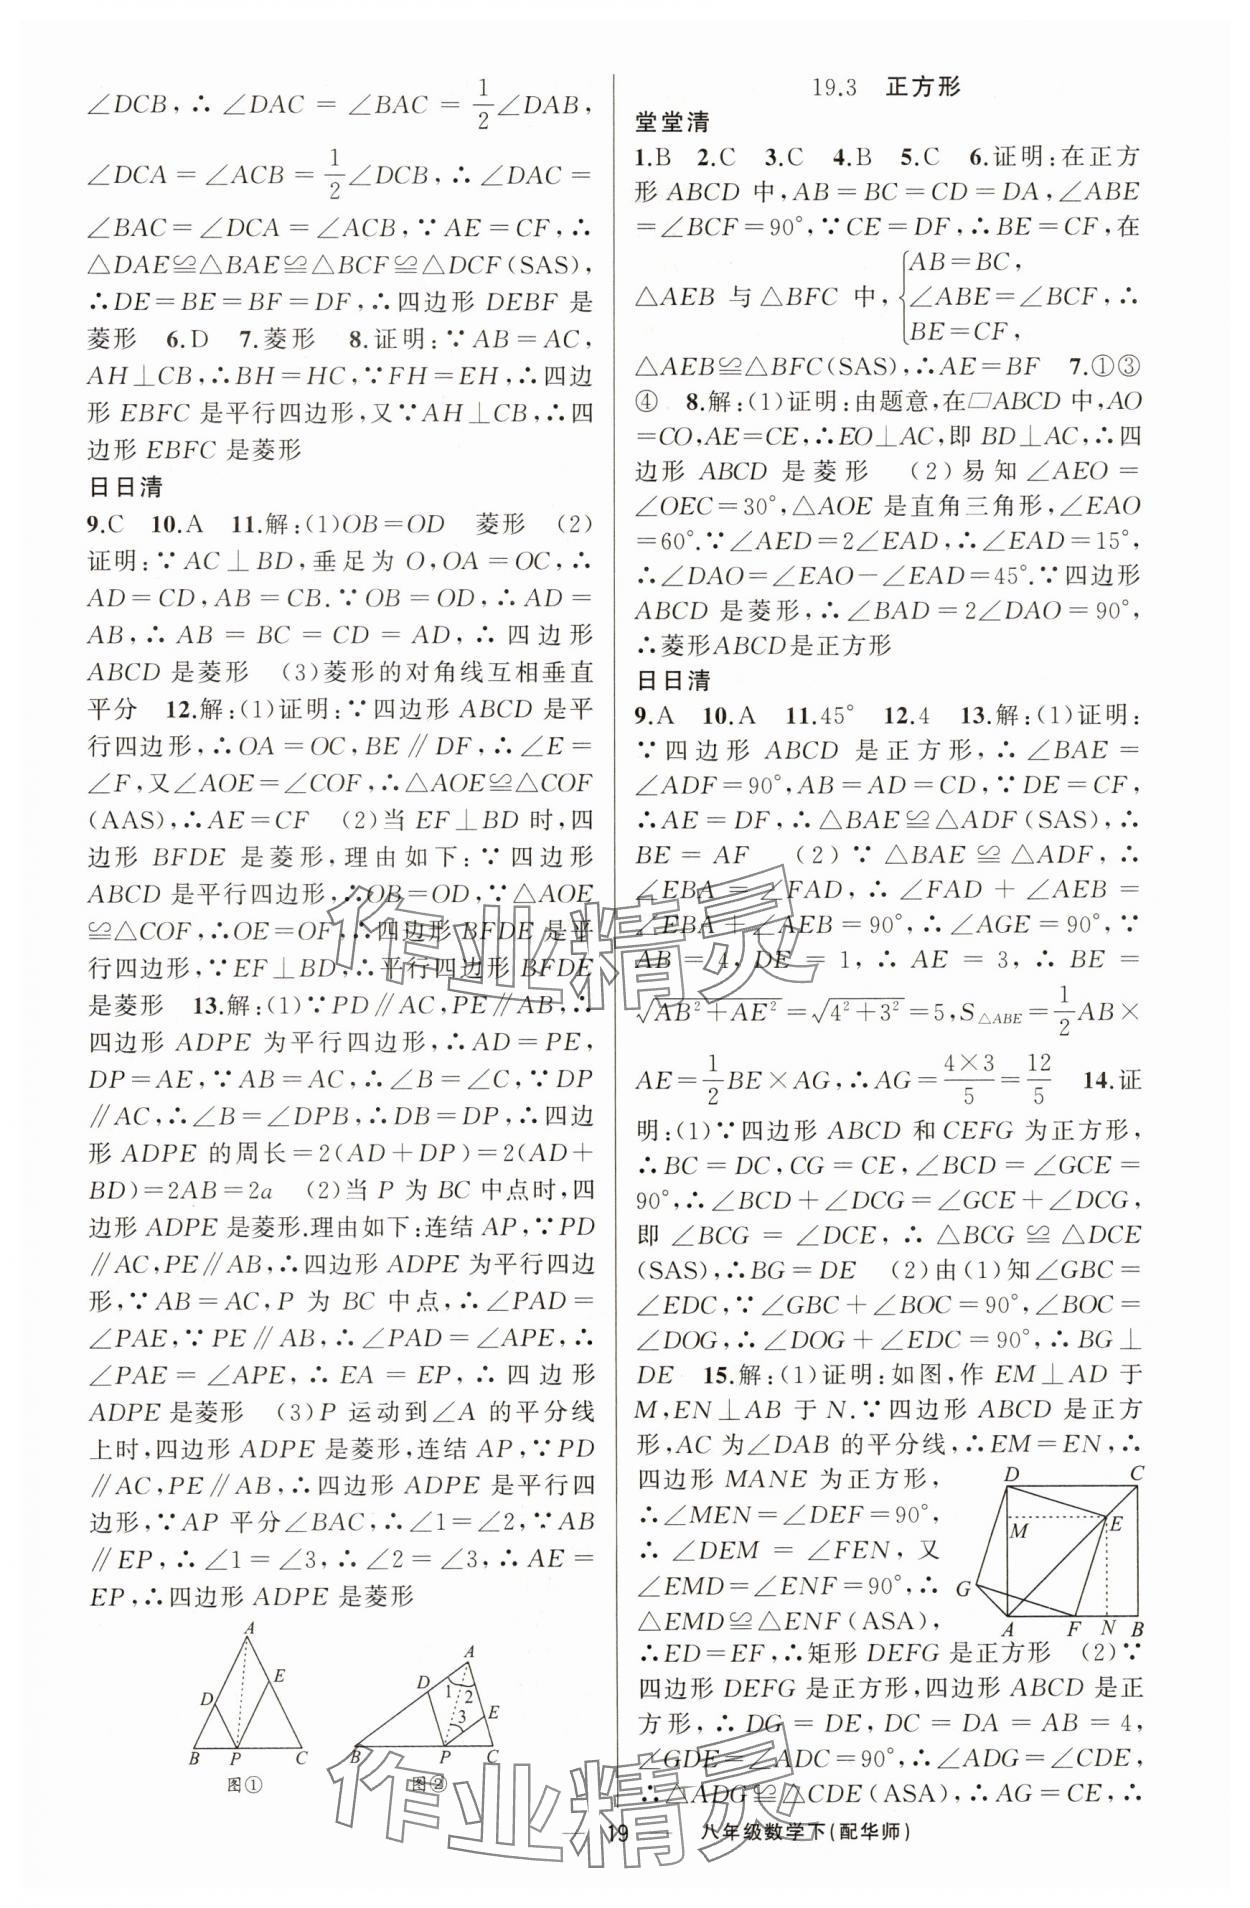 ∠DCB,∴∠DAC=∠BAC=1/2∠DAB,
∠DCA=∠ACB=1/2∠DCB,∴∠DAC=
∠BAC=∠DCA=∠ACB,∵AE=CF,∴
△DAE≌△BAE≌△BCF≌△DCF(SAS),
∴DE=BE=BF=DF,∴四边形 DEBF 是
菱形 6.D 7.菱形 8.证明:∵AB=AC,
AH⊥CB,∴BH=HC,∵FH=EH,∴四边
形 EBFC 是平行四边形,又∵AH⊥CB,∴四
边形 EBFC 是菱形
日日清
9.C 10.A 11.解:(1)OB=OD 菱形 (2)
证明:∵AC⊥BD,垂足为 O,OA=OC,∴
AD=CD,AB=CB.∵OB=OD,∴AD=
AB,∴AB=BC=CD=AD,∴四边形
ABCD 是菱形 (3)菱形的对角线互相垂直
平分 12.解:(1)证明:∵四边形 ABCD 是平
行四边形,∴OA=OC,BE∥DF,∴∠E=
∠F,又∠AOE=∠COF,∴△AOE≌△COF
(AAS),∴AE=CF (2)当 EF⊥BD 时,四
边形 BFDE 是菱形,理由如下:∵四边形
ABCD 是平行四边形,∴OB=OD,∵△AOE
≌△COF,∴OE=OF,∴四边形 BFDE 是平
行四边形,∵EF⊥BD,∴平行四边形 BFDE
是菱形 13.解:(1)∵PD∥AC,PE∥AB,∴
四边形 ADPE 为平行四边形,∴AD=PE,
DP=AE,∵AB=AC,∴∠B=∠C,∵DP
∥AC,∴∠B=∠DPB,∴DB=DP,∴四边
形 ADPE 的周长=2(AD+DP)=2(AD+
BD)=2AB=2a (2)当 P 为 BC 中点时,四
边形 ADPE 是菱形.理由如下:连结 AP,∵PD
∥AC,PE∥AB,∴四边形 ADPE 为平行四边
形,∵AB=AC,P 为 BC 中点,∴∠PAD=
∠PAE,∵PE∥AB,∴∠PAD=∠APE,∴
∠PAE=∠APE,∴EA=EP,∴四边形
ADPE 是菱形 (3)P 运动到∠A 的平分线
上时,四边形 ADPE 是菱形,连结 AP,∵PD
∥AC,PE∥AB,∴四边形 ADPE 是平行四
边形,∵AP 平分∠BAC,∴∠1=∠2,∵AB
∥EP,∴∠1=∠3,∴∠2=∠3,∴AE=
EP,∴四边形 ADPE 是菱形
A
D
E
B
P
C
图①
A
D
1
2
3
E
B
P
C
图②
19.3 正方形
堂堂清
1.B 2.C 3.C 4.B 5.C 6.证明:在正方
形 ABCD 中,AB=BC=CD=DA,∠ABE
=∠BCF=90°,∵CE=DF,∴BE=CF,在
△AEB 与△BFC 中,{AB=BC,
∠ABE=∠BCF,∴
BE=CF,
△AEB≌△BFC(SAS),∴AE=BF 7.①③
④ 8.解:(1)证明:由题意,在▱ABCD 中,AO
=CO,AE=CE,∴EO⊥AC,即 BD⊥AC,∴四
边形 ABCD 是菱形 (2)易知∠AEO=
∠OEC=30°,△AOE 是直角三角形,∠EAO
=60°.∵∠AED=2∠EAD,∴∠EAD=15°,
∴∠DAO=∠EAO-∠EAD=45°.∵四边形
ABCD 是菱形,∴∠BAD=2∠DAO=90°,
∴菱形ABCD是正方形
日日清
9.A 10.A 11.45° 12.4 13.解:(1)证明:
∵四边形 ABCD 是正方形,∴∠BAE=
∠ADF=90°,AB=AD=CD,∵DE=CF,
∴AE=DF,∴△BAE≌△ADF(SAS),∴
BE=AF (2)∵△BAE≌△ADF,∴
∠EBA=∠FAD,∴∠FAD+∠AEB=
∠EBA+∠AEB=90°,∴∠AGE=90°,∵
AB=4,DE=1,∴AE=3,∴BE=
√(AB²+AE²)=√(4²+3²)=5,S△ABE=1/2AB×
AE=1/2BE×AG,∴AG=4×3/5=12/5 14.证
明:(1)∵四边形 ABCD 和 CEFG 为正方形,
∴BC=DC,CG=CE,∠BCD=∠GCE=
90°,∴∠BCD+∠DCG=∠GCE+∠DCG,
即∠BCG=∠DCE,∴△BCG≌△DCE
(SAS),∴BG=DE (2)由(1)知∠GBC=
∠EDC,∵∠GBC+∠BOC=90°,∠BOC=
∠DOG,∴∠DOG+∠EDC=90°,∴BG⊥
DE 15.解:(1)证明:如图,作 EM⊥AD 于
M,EN⊥AB 于 N.∵四边形 ABCD 是正方
形,AC 为∠DAB 的平分线,∴EM=EN,∴
四边形 MANE 为正方形,
∴∠MEN=∠DEF=90°,
∴∠DEM=∠FEN,又
∠EMD=∠ENF=90°,∴
△EMD≌△ENF(ASA),
∴ED=EF,∴矩形 DEFG 是正方形 (2)∵
四边形 DEFG 是正方形,四边形 ABCD 是正
方形,∴DG=DE,DC=DA=AB=4,
∠GDE=∠ADC=90°,∴∠ADG=∠CDE,
∴△ADG≌△CDE(ASA),∴AG=CE,∴
D
C
M
E
G
A
F
N
B
19
八年级数学下(配华师)
作业精灵
作业精灵